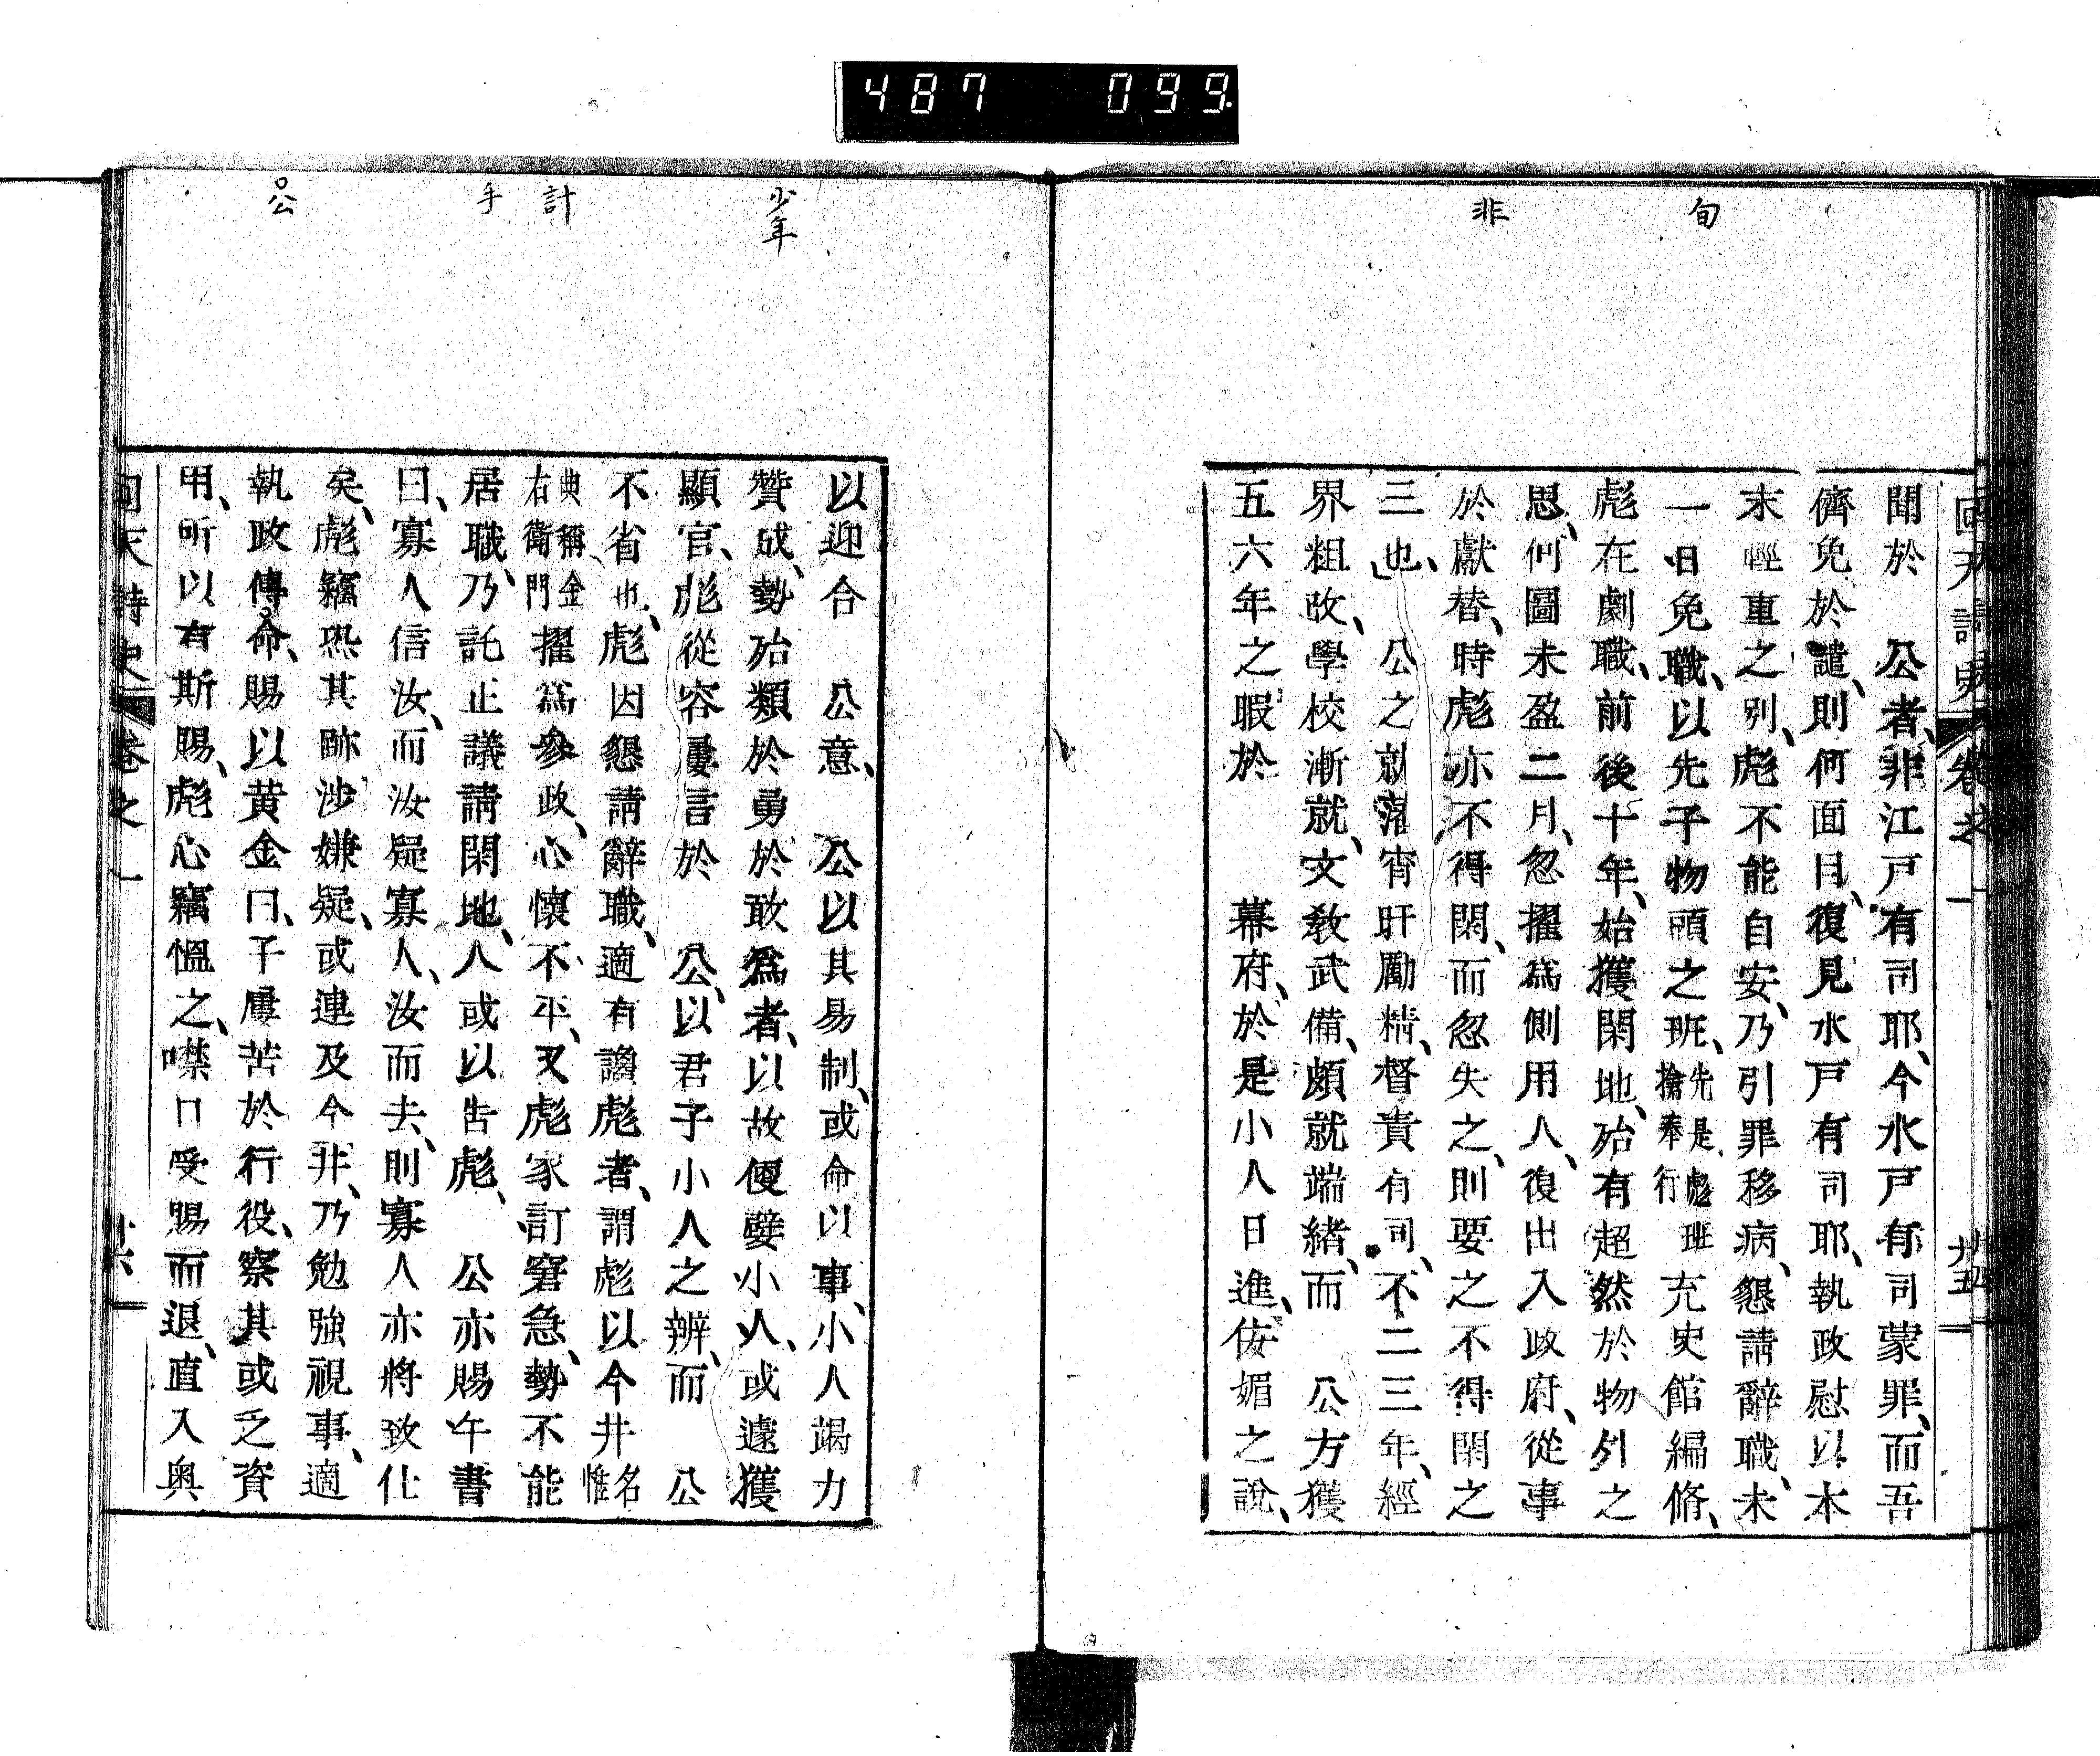 487 099
旬
非
回天詩史 卷之一 廿五
聞於 公者、非江戸有司耶、今水戸有司蒙罪、而吾
儕免於譴、則何面目、復見水戸有司耶、執政慰以本
末輕重之別、彪不能自安、乃引罪移病、懇請辭職、未
一日免職、以先子物頭之班、先是、彪班搶奉行充史館編脩、
彪在劇職、前後十年、始獲閑地、殆有超然於物外之
思、何圖未盈二月、忽擢爲側用人、復出入政府、從事
於獻替、時彪亦不得閑、而忽失之、則要之不得閑之
三也、 公之就藩宵旰勵精、督責有司、不二三年、經
界粗改、學校漸就、文教武備、頗就端緒、而 公方獲
五六年之暇於 幕府、於是小人日進、佞媚之說、
少年
計
手
公
以迎合 公意、 公以其易制、或命以事、小人竭力
贊成、勢殆類於勇於敢爲者、以故僾嬖小人、或遽獲
顯官、彪從容屢言於 公、以君子小人之辨、而 公
不省也、彪因懇請辭職、適有讒彪者、謂彪以今井名惟
典稱金右衛門擢爲參政、心懷不平、又彪家訂窘急、勢不能
居職、乃託止議請閑地、人或以告彪、 公亦賜午書
曰、寡人信汝、而汝疑寡人、汝而去、則寡人亦將致仕
矣、彪竊恐其跡涉嫌疑、或連及今井、乃勉強視事、適
執政傳命、賜以黄金曰、子屢苦於行役、察其或乏資
用、所以有斯賜、彪心竊慍之、噤口受賜而退、直入奥
回天詩史 卷之一 廿六